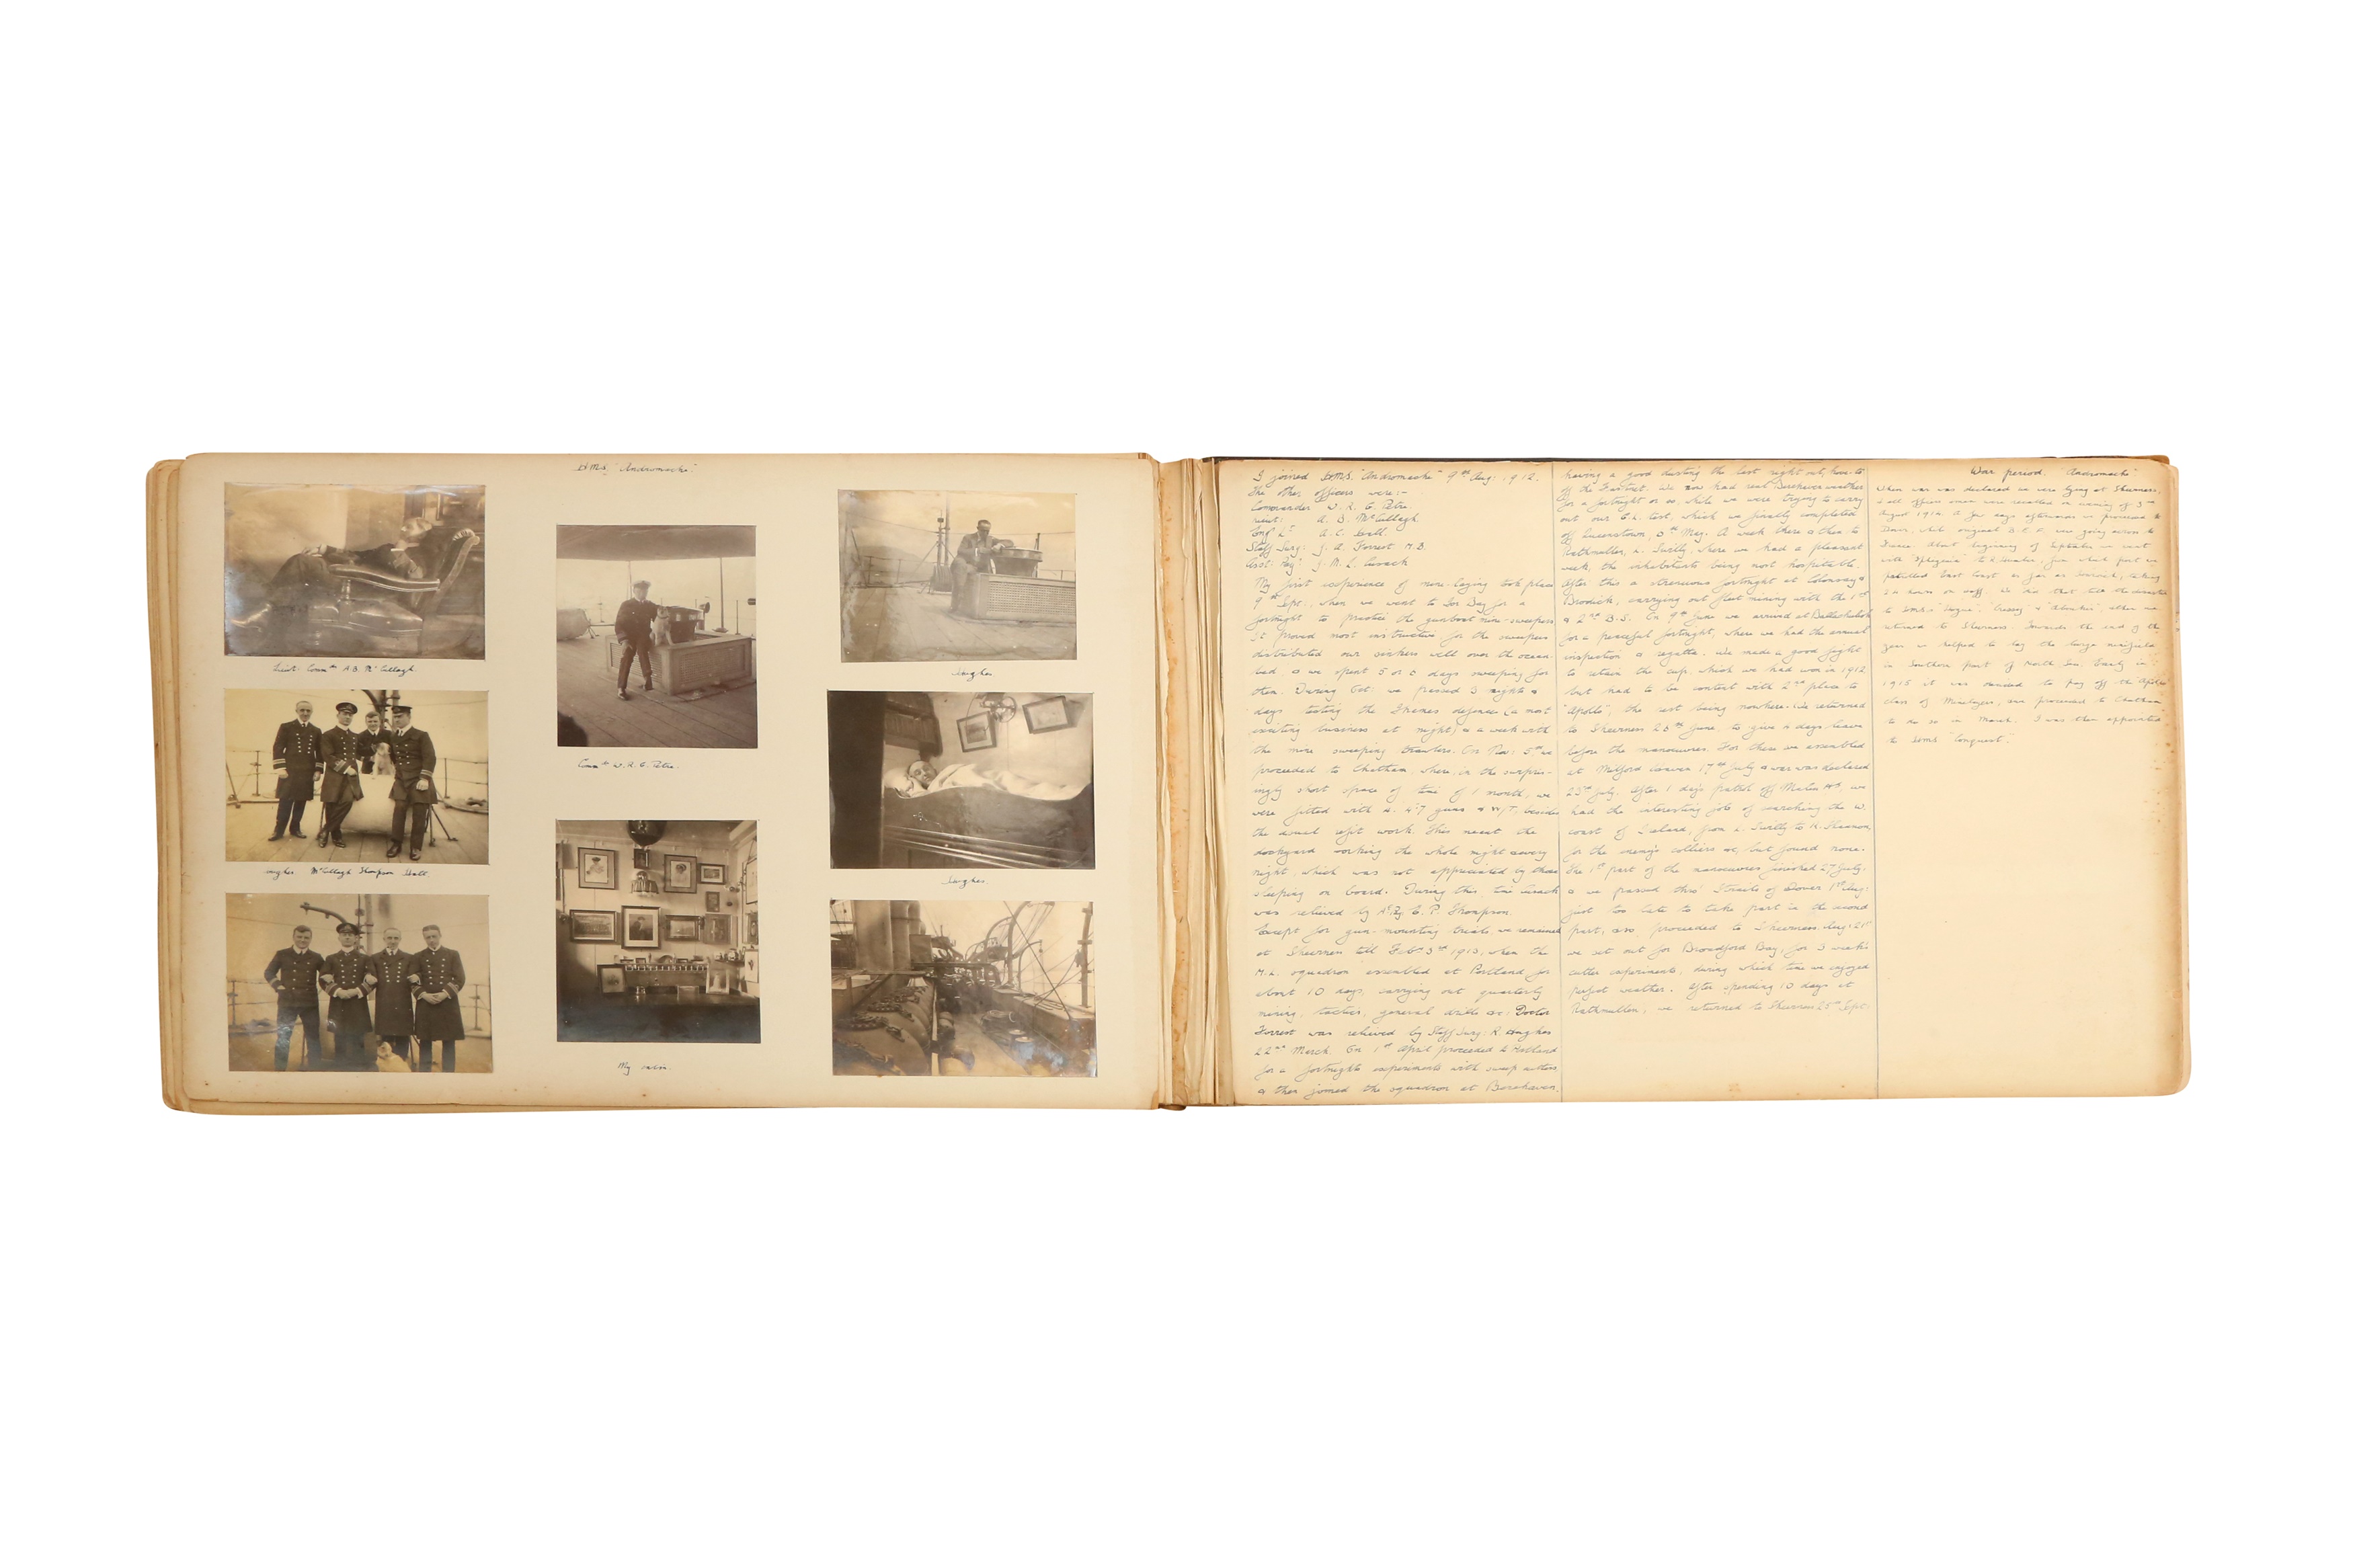 H.M.S. "Andromache".
Lieut: Comdr A. B. McCullagh.
Hughes McCullagh Thompson Hall.
Comdr W. R. G. Petre.
My cabin.
Hughes.
Hughes.
I joined H.M.S. "Andromache" 9th Aug: 1912.
The other officers were:-
Commander W. R. G. Petre.
Lieut: A. B. McCullagh.
Eng Lt A. C. Hall.
Staff Surg: J. A. Forrest M.B.
Asst: Pay: J. M. L. Cusack
My first experience of mine-laying took place
9th Sept:, when we went to Tor Bay for a
fortnight to practice the gunboat mine-sweepers
It proved most instructive for the sweepers
distributed our sinkers well over the ocean
bed, & we spent 5 or 6 days sweeping for
them. During Oct: we passed 3 nights &
days testing the Thames defence (a most
exciting business at night) & a week with
the mine sweeping trawlers. On Nov: 5th we
proceeded to Chatham where, in the surpris-
ingly short space of time of 1 month, we
were fitted with 4. 4.7 guns & W/T, besides
the usual refit work. This meant the
dockyard working the whole night every
night, which was not appreciated by those
sleeping on board. During this time Cusack
was relieved by C. P. Thompson.
Except for gun-mounting trials we remained
at Sheerness till Feb: 3rd 1913, when the
M.L. squadron assembled at Portland for
about 10 days, carrying out quarterly
mining, tactics, general drills &c: Doctor
Forrest was relieved by Staff Surg: R. Hughes
22nd March. On 1st April proceeded to Portland
for a fortnight's experiments with sweep cutters
& then joined the squadron at Berehaven,
having a good dusting the last night out, hove-to
off the Fastnet. We now had real Berehaven weather
for a fortnight or so while we were trying to carry
out our test, which we finally completed
off Queenstown, May. A week there & then to
Rathmullen, L. Swilly, where we had a pleasant
week, the inhabitants being most hospitable.
After this a strenuous fortnight at Colonsay &
Brodick, carrying out fleet mining with the 1st
& 2nd B.S. On 9th June we arrived at Ballachulish
for a peaceful fortnight, where we had the annual
inspection & regatta. We made a good fight
to retain the cup, which we had won in 1912,
but had to be content with 2nd place to
"Apollo", the rest being nowhere. We returned
to Sheerness June, to give 4 days leave
before the manoeuvres. For these we assembled
at Milford Haven 17th July & war was declared
23rd July. After 1 day's patrol off we
had the interesting job of searching the W.
coast of Ireland, from L. Swilly to R. Shannon,
for the enemy's colliers &c, but found none.
The 1st part of the manoeuvres finished July,
& we passed thro' Straits of Dover 1st Aug:
just too late to take part in the second
part, & so proceeded to Sheerness. Aug: 21st
we set out for Broadford Bay, for 3 weeks
cutter experiments, during which time we enjoyed
perfect weather. After spending 10 days at
Rathmullen, we returned to Sheerness 25th Sept.
War period. "Andromache"
When war was declared we were lying at Sheerness,
& all officers & men were recalled on evening of 3rd
August 1914. A few days afterwards we proceeded to
Dover, while original B.E.F. were going across to
France. About beginning of September we went
with "Iphigenia" to R. Humber, from which port we
patrolled East Coast as far as , taking
24 hours on & off. We had that time the disaster
to H.M.S. "Hogue", "Cressy" & "Aboukir", when we
returned to Sheerness. Towards the end of the
year we helped to lay the large minefields
in Southern part of North Sea. Early in
1915 it was decided to pay off the "Apollo"
class of Minelayers, & we proceeded to Chatham
to do so in March. I was then appointed
to H.M.S. "Conquest".